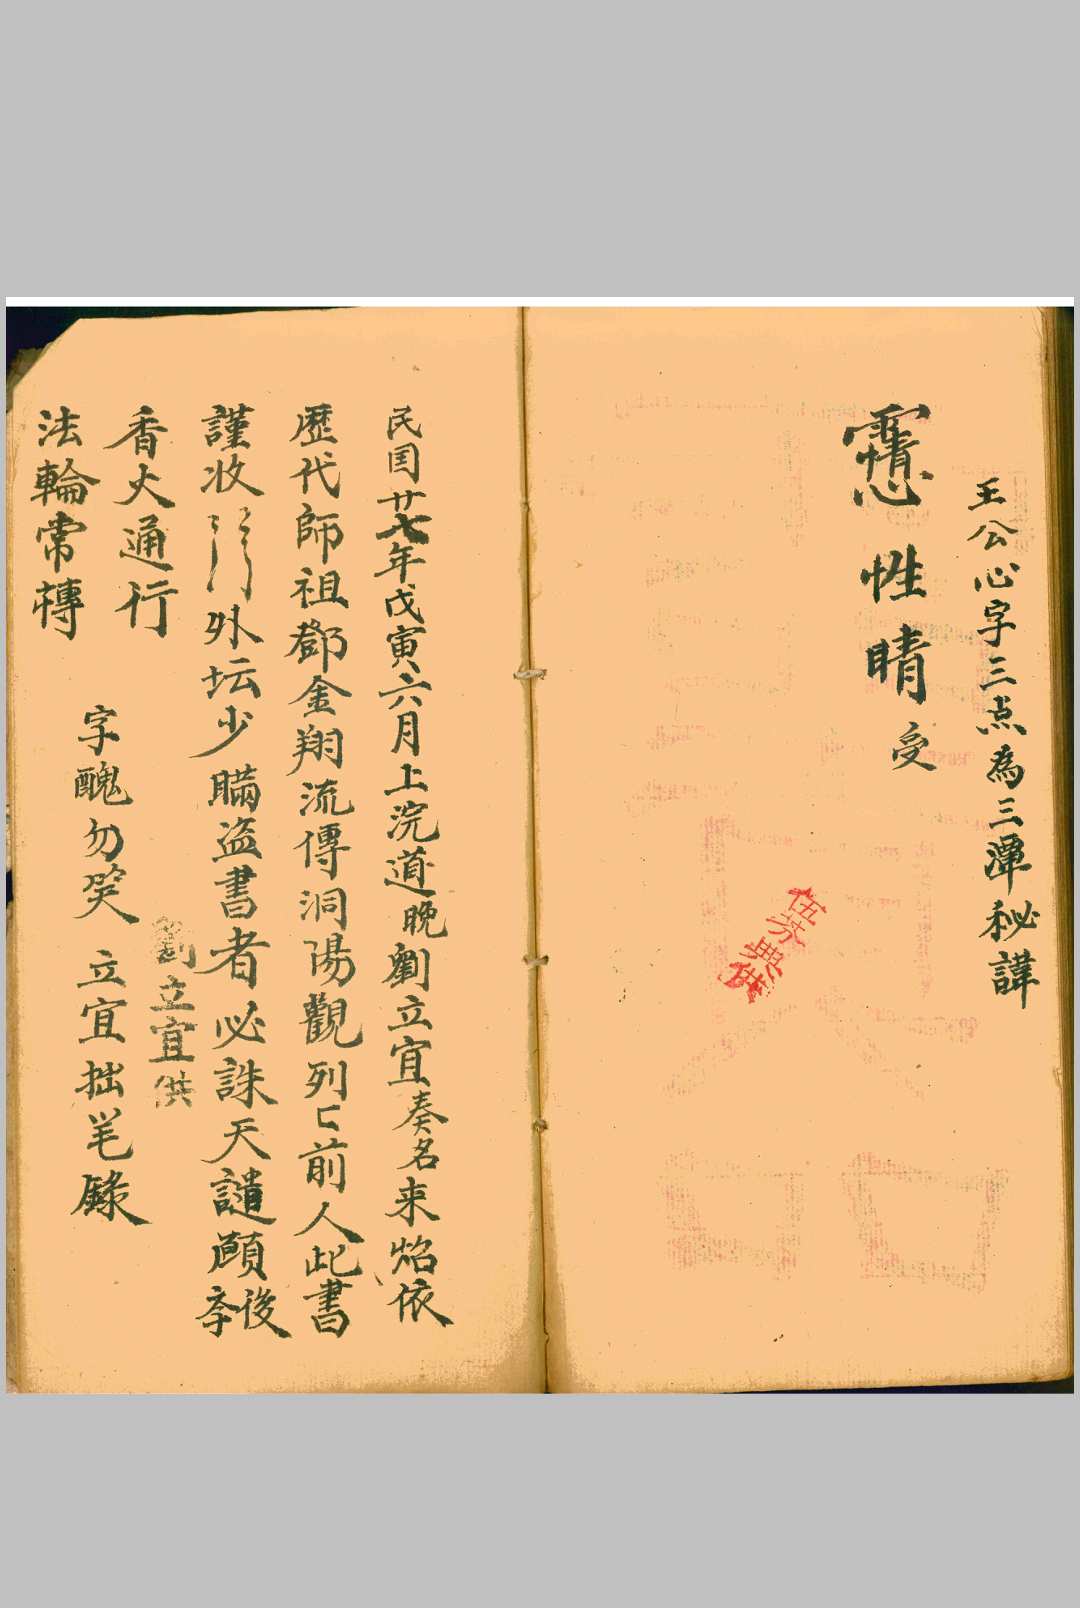 王公心字三点為三潭秘諱
性 晴 受
伍芬典供
民囯廿七年戊寅六月上浣道晚劉立宜奏名来焰依
歷代師祖鄧金翔流傳洞陽觀列匸前人此書
謹收 外坛少瞞盗書者必誅天譴願後李
香火通行
法輪常轉
劉立宜供
字醜勿笑 立宜拙笔錄